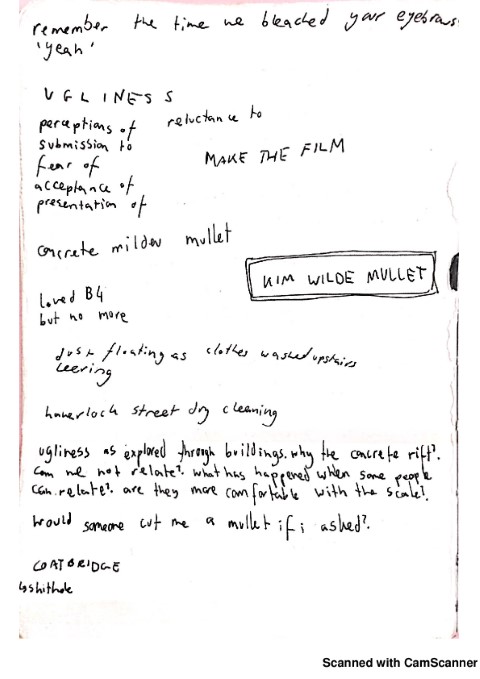 remember the time we bleached your eyebrows
'yeah'
UGLINESS
perceptions of reluctance to
submission to
fear of MAKE THE FILM
acceptance of
presentation of
concrete milden mullet
KIM WILDE MULLET
loved B4
but no more
dust floating as clothes washed upstairs
leering
haverloch street dry cleaning
ugliness as explored through buildings. why the concrete rift?
can we not relate? what has happened when some people
can relate? are they more comfortable with the scale?
would someone cut me a mullet if i asked?
COATBRIDGE
↳shithole
Scanned with CamScanner